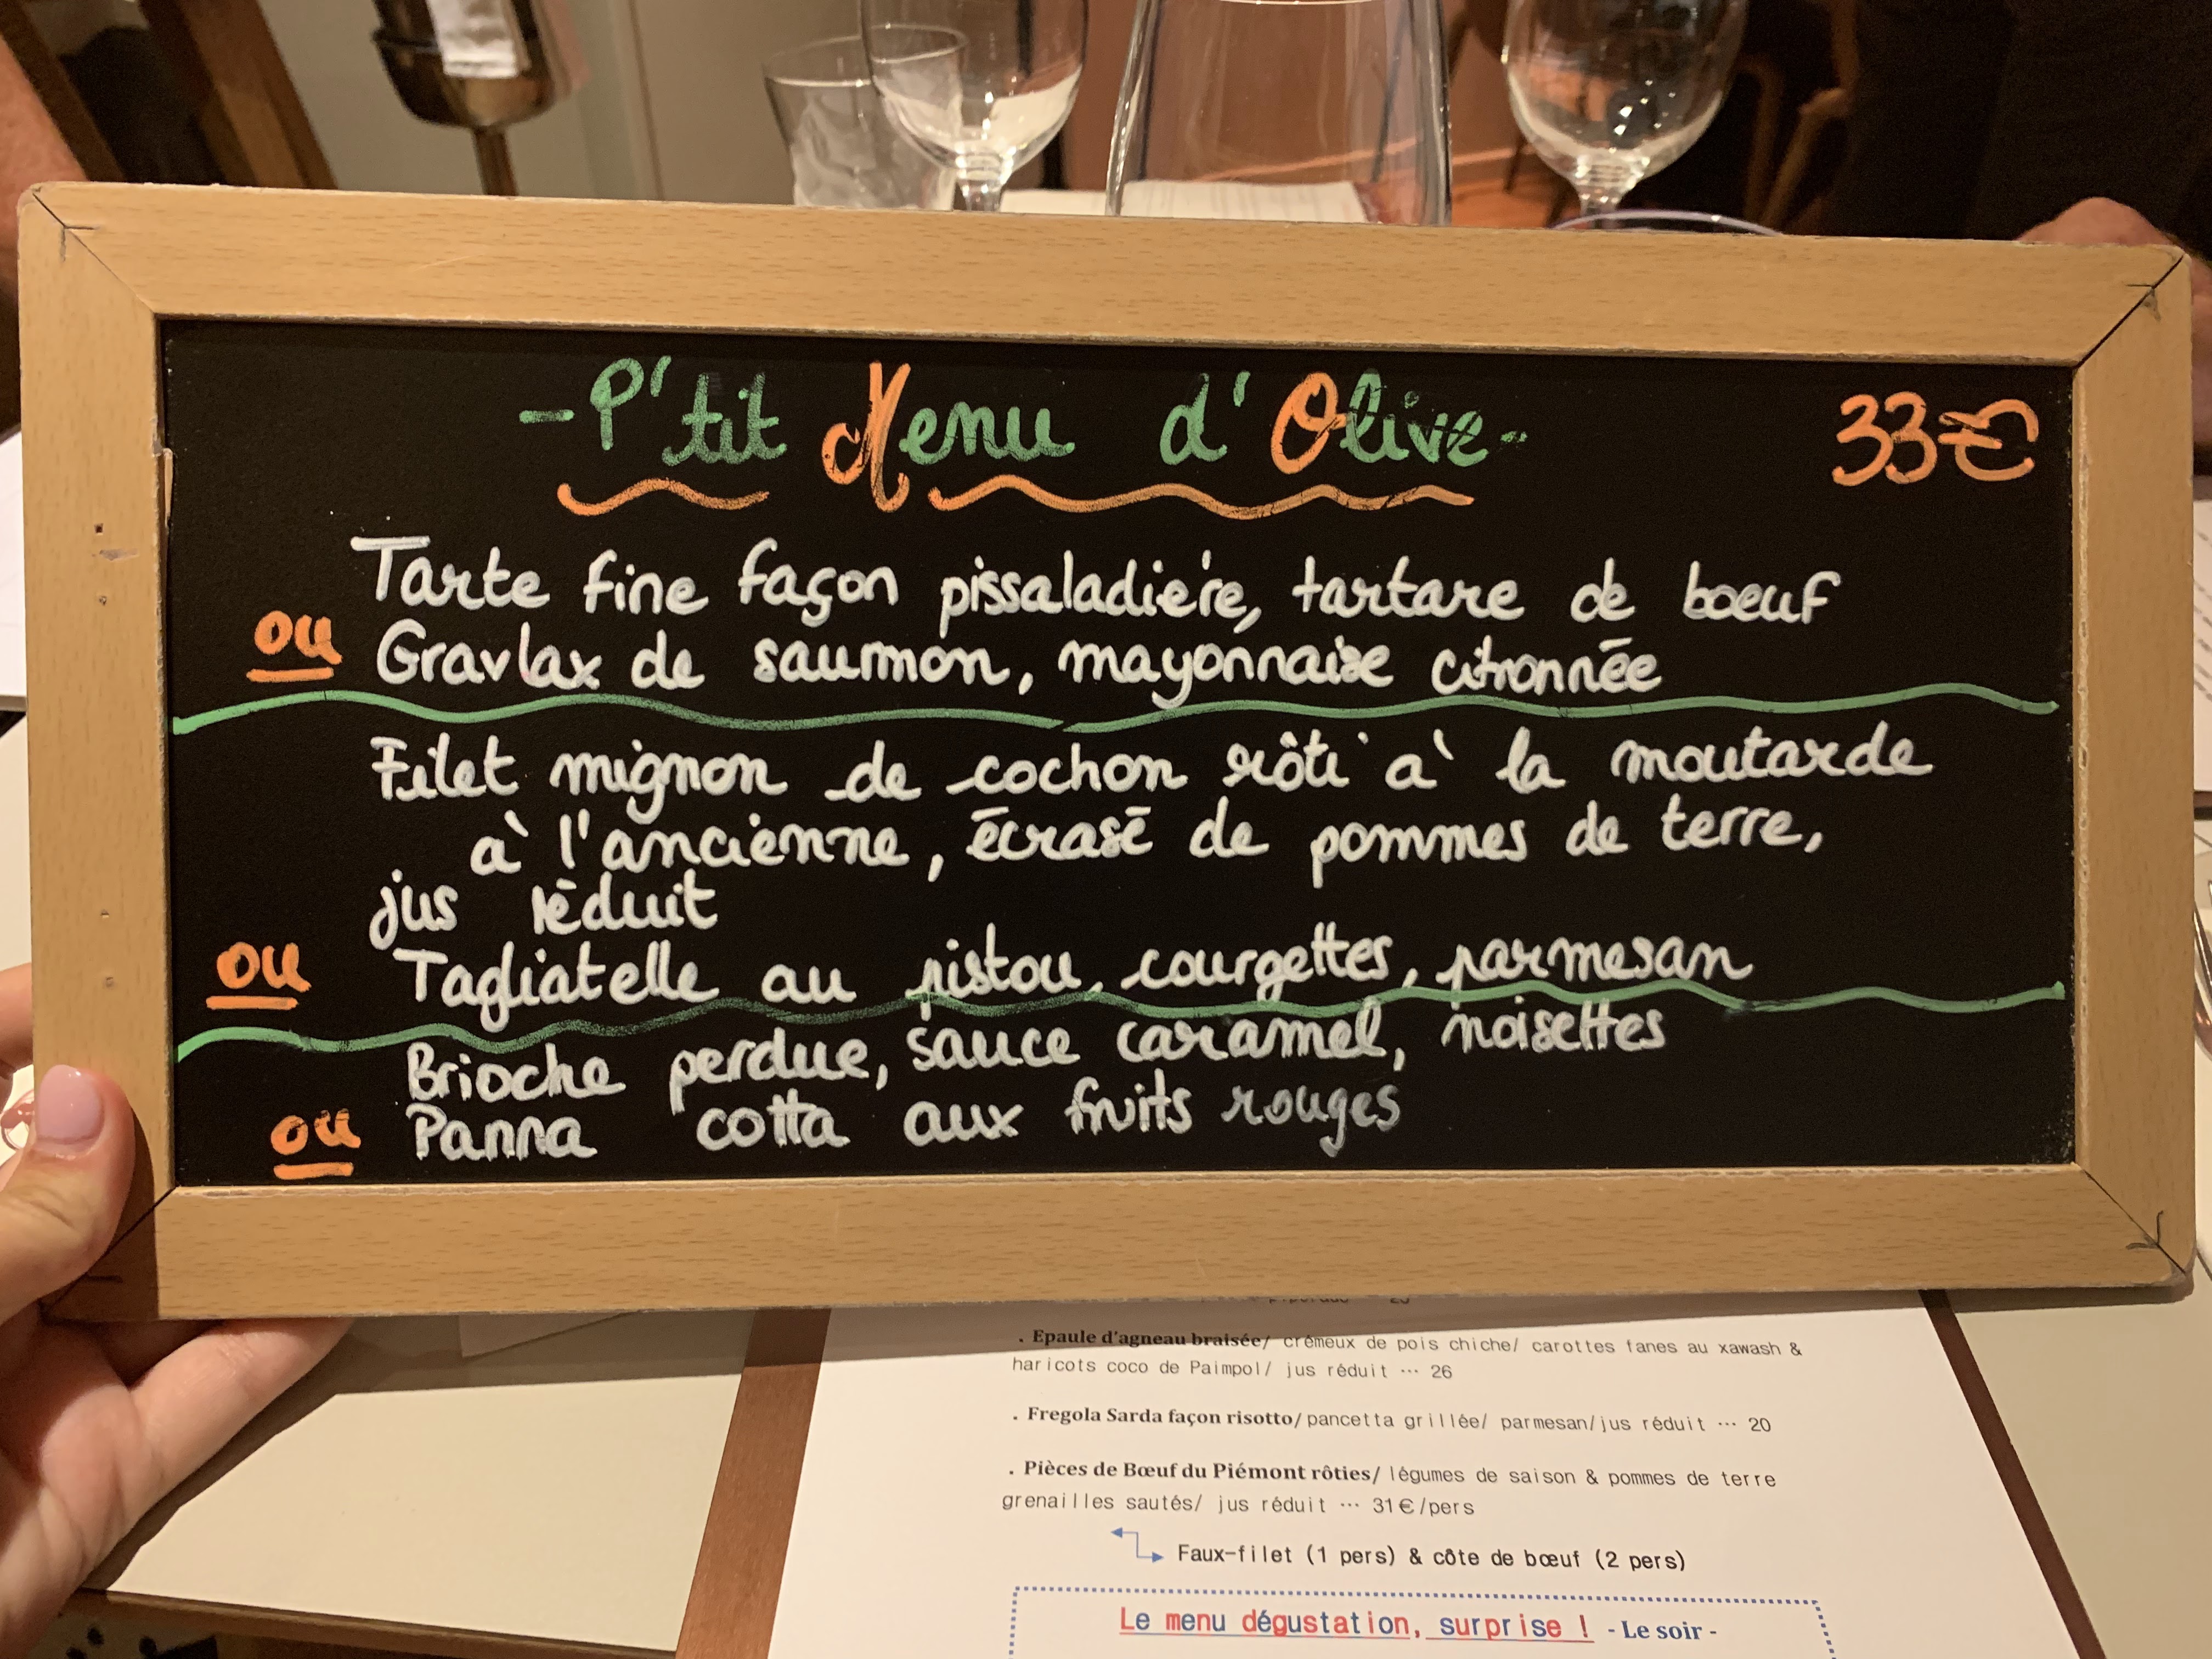 - P'tit Menu d'Olive -
33€
Tarte fine façon pissaladière, tartare de boeuf
ou Gravlax de saumon, mayonnaise citronnée
Filet mignon de cochon rôti à la moutarde
à l'ancienne, écrasé de pommes de terre,
jus réduit
ou Tagliatelle au pistou, courgettes, parmesan
Brioche perdue, sauce caramel, noisettes
ou Panna cotta aux fruits rouges
. Epaule d'agneau braisée/ crémeux de pois chiche/ carottes fanes au xawash &
haricots coco de Paimpol/ jus réduit ... 26
. Fregola Sarda façon risotto/ pancetta grillée/ parmesan/ jus réduit ... 20
. Pièces de Bœuf du Piémont rôties/ légumes de saison & pommes de terre
grenailles sautés/ jus réduit ... 31€/pers
Faux-filet (1 pers) & côte de bœuf (2 pers)
Le menu dégustation, surprise ! - Le soir -